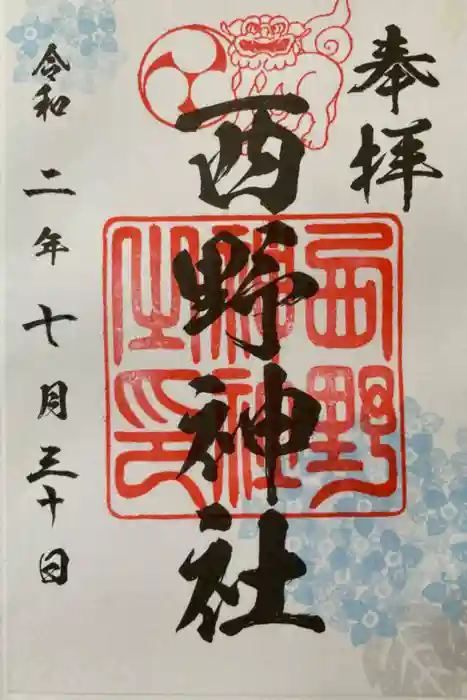 奉拝
西野神社
西野神社之印
令和二年七月三十日